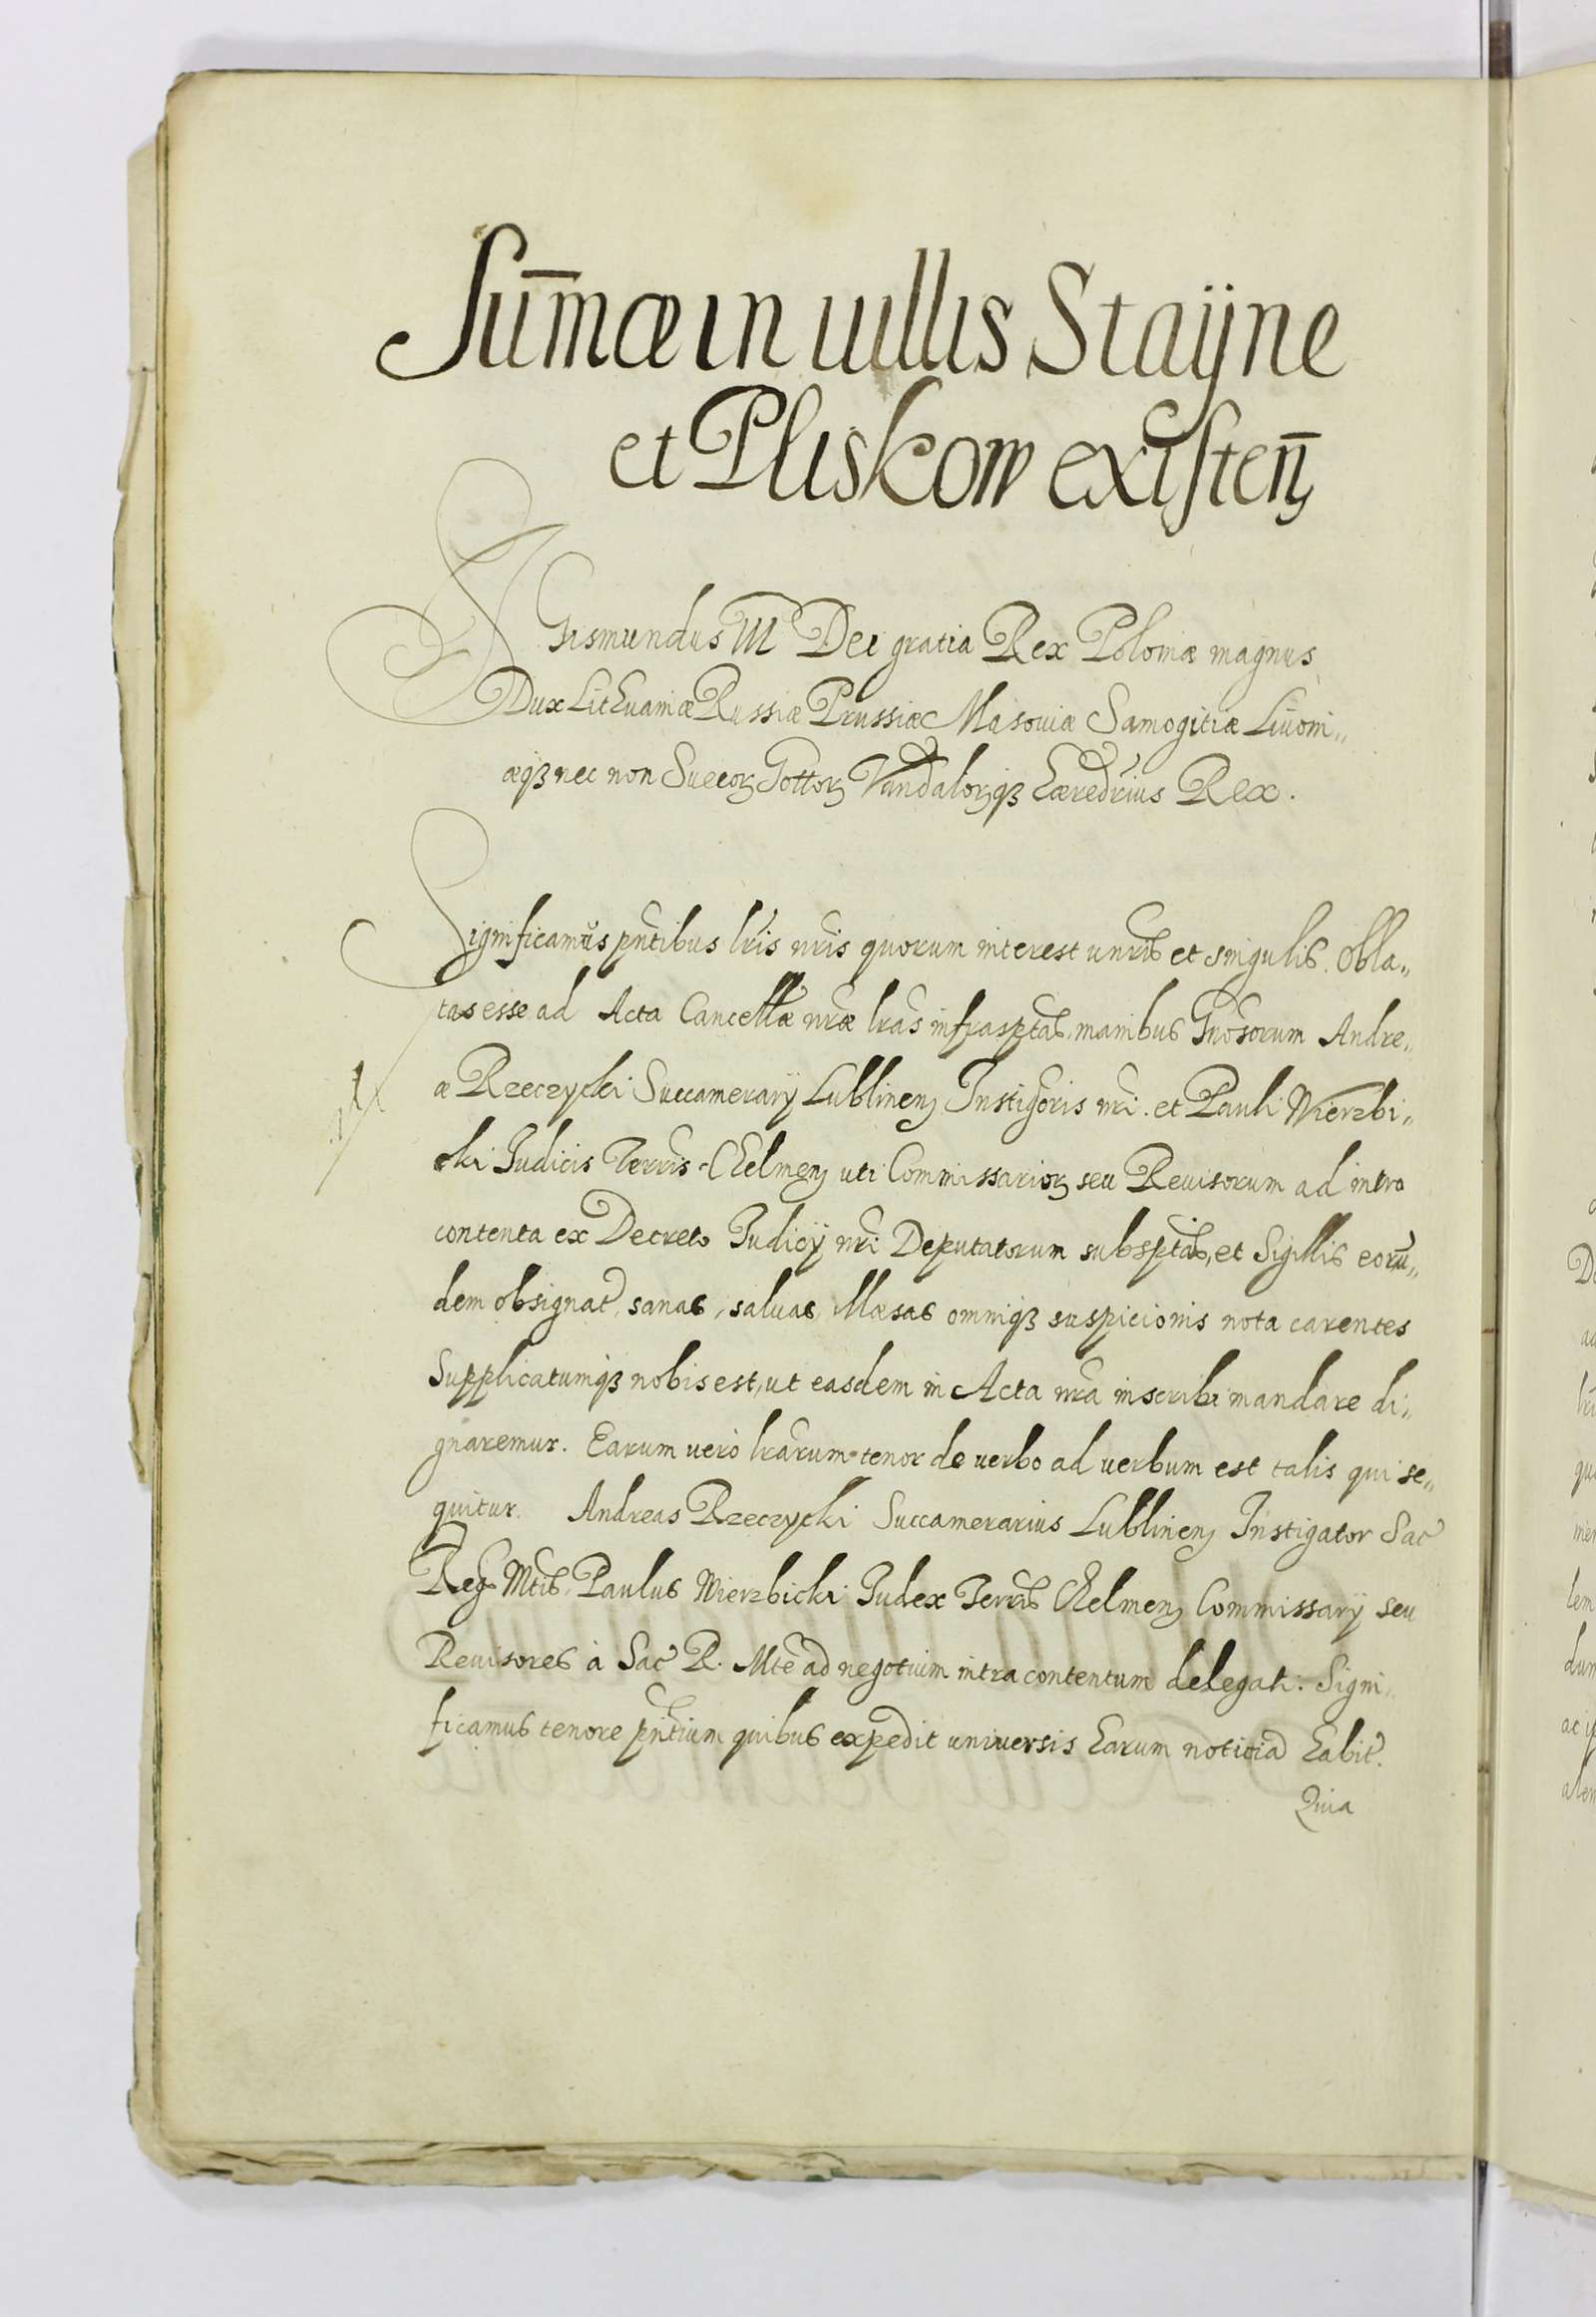 Sum̄æ in uillis Staÿne
et Pliskow existen̄
SIGismundus III Dei gratia Rex Poloniæ magnus
Dux Lithuaniæ Russiæ Prussiæ Masouiæ Samogitiæ Liuoni„
æqꝫ nec non Suecoꝝ Gottoꝝ Vandaloꝝqꝫ hæredrius Rex.
Significamus pñtibus lr̃is nr̃is quorum interest unr̃is et singulis. Obla„
tas esse ad Acta Cancellæ nr̃æ lr̃as infrasptas manibus Gnosorum Andre„
æ Rzeczycki Succamerarÿ Lublineñ Instigoris nr̃i. et Pauli Wierzbi„
cki Judicis Terris Chelmeñ uti Commissarioꝝ seu Reuisorum ad intro
contenta ex Decreto Judicÿ nr̃i Deputatorum subsptas, et Sigillis eorū„
dem obsignat, sanas, saluas, illæsas omniqꝫ suspicionis nota carentes
Supplicatumqꝫ nobis est, ut easdem in Acta nr̃a inscribi mandare di„
gnaremur. Earum uero lr̃arum tenor de uerbo ad uerbum est talis qui se„
quitur. Andreas Rzeczycki Succamerarius Lublineñ Instigator Sac
Reg Mtis, Paulus Wierzbicki Judex Terris Chelmeñ Commissarÿ seu
Reuisores à Sac R. Mte ad negotium intra contentum delegati: Signi„
ficamus tenore pñtium quibus expedit uniuersis harum notitia habit.
Quia